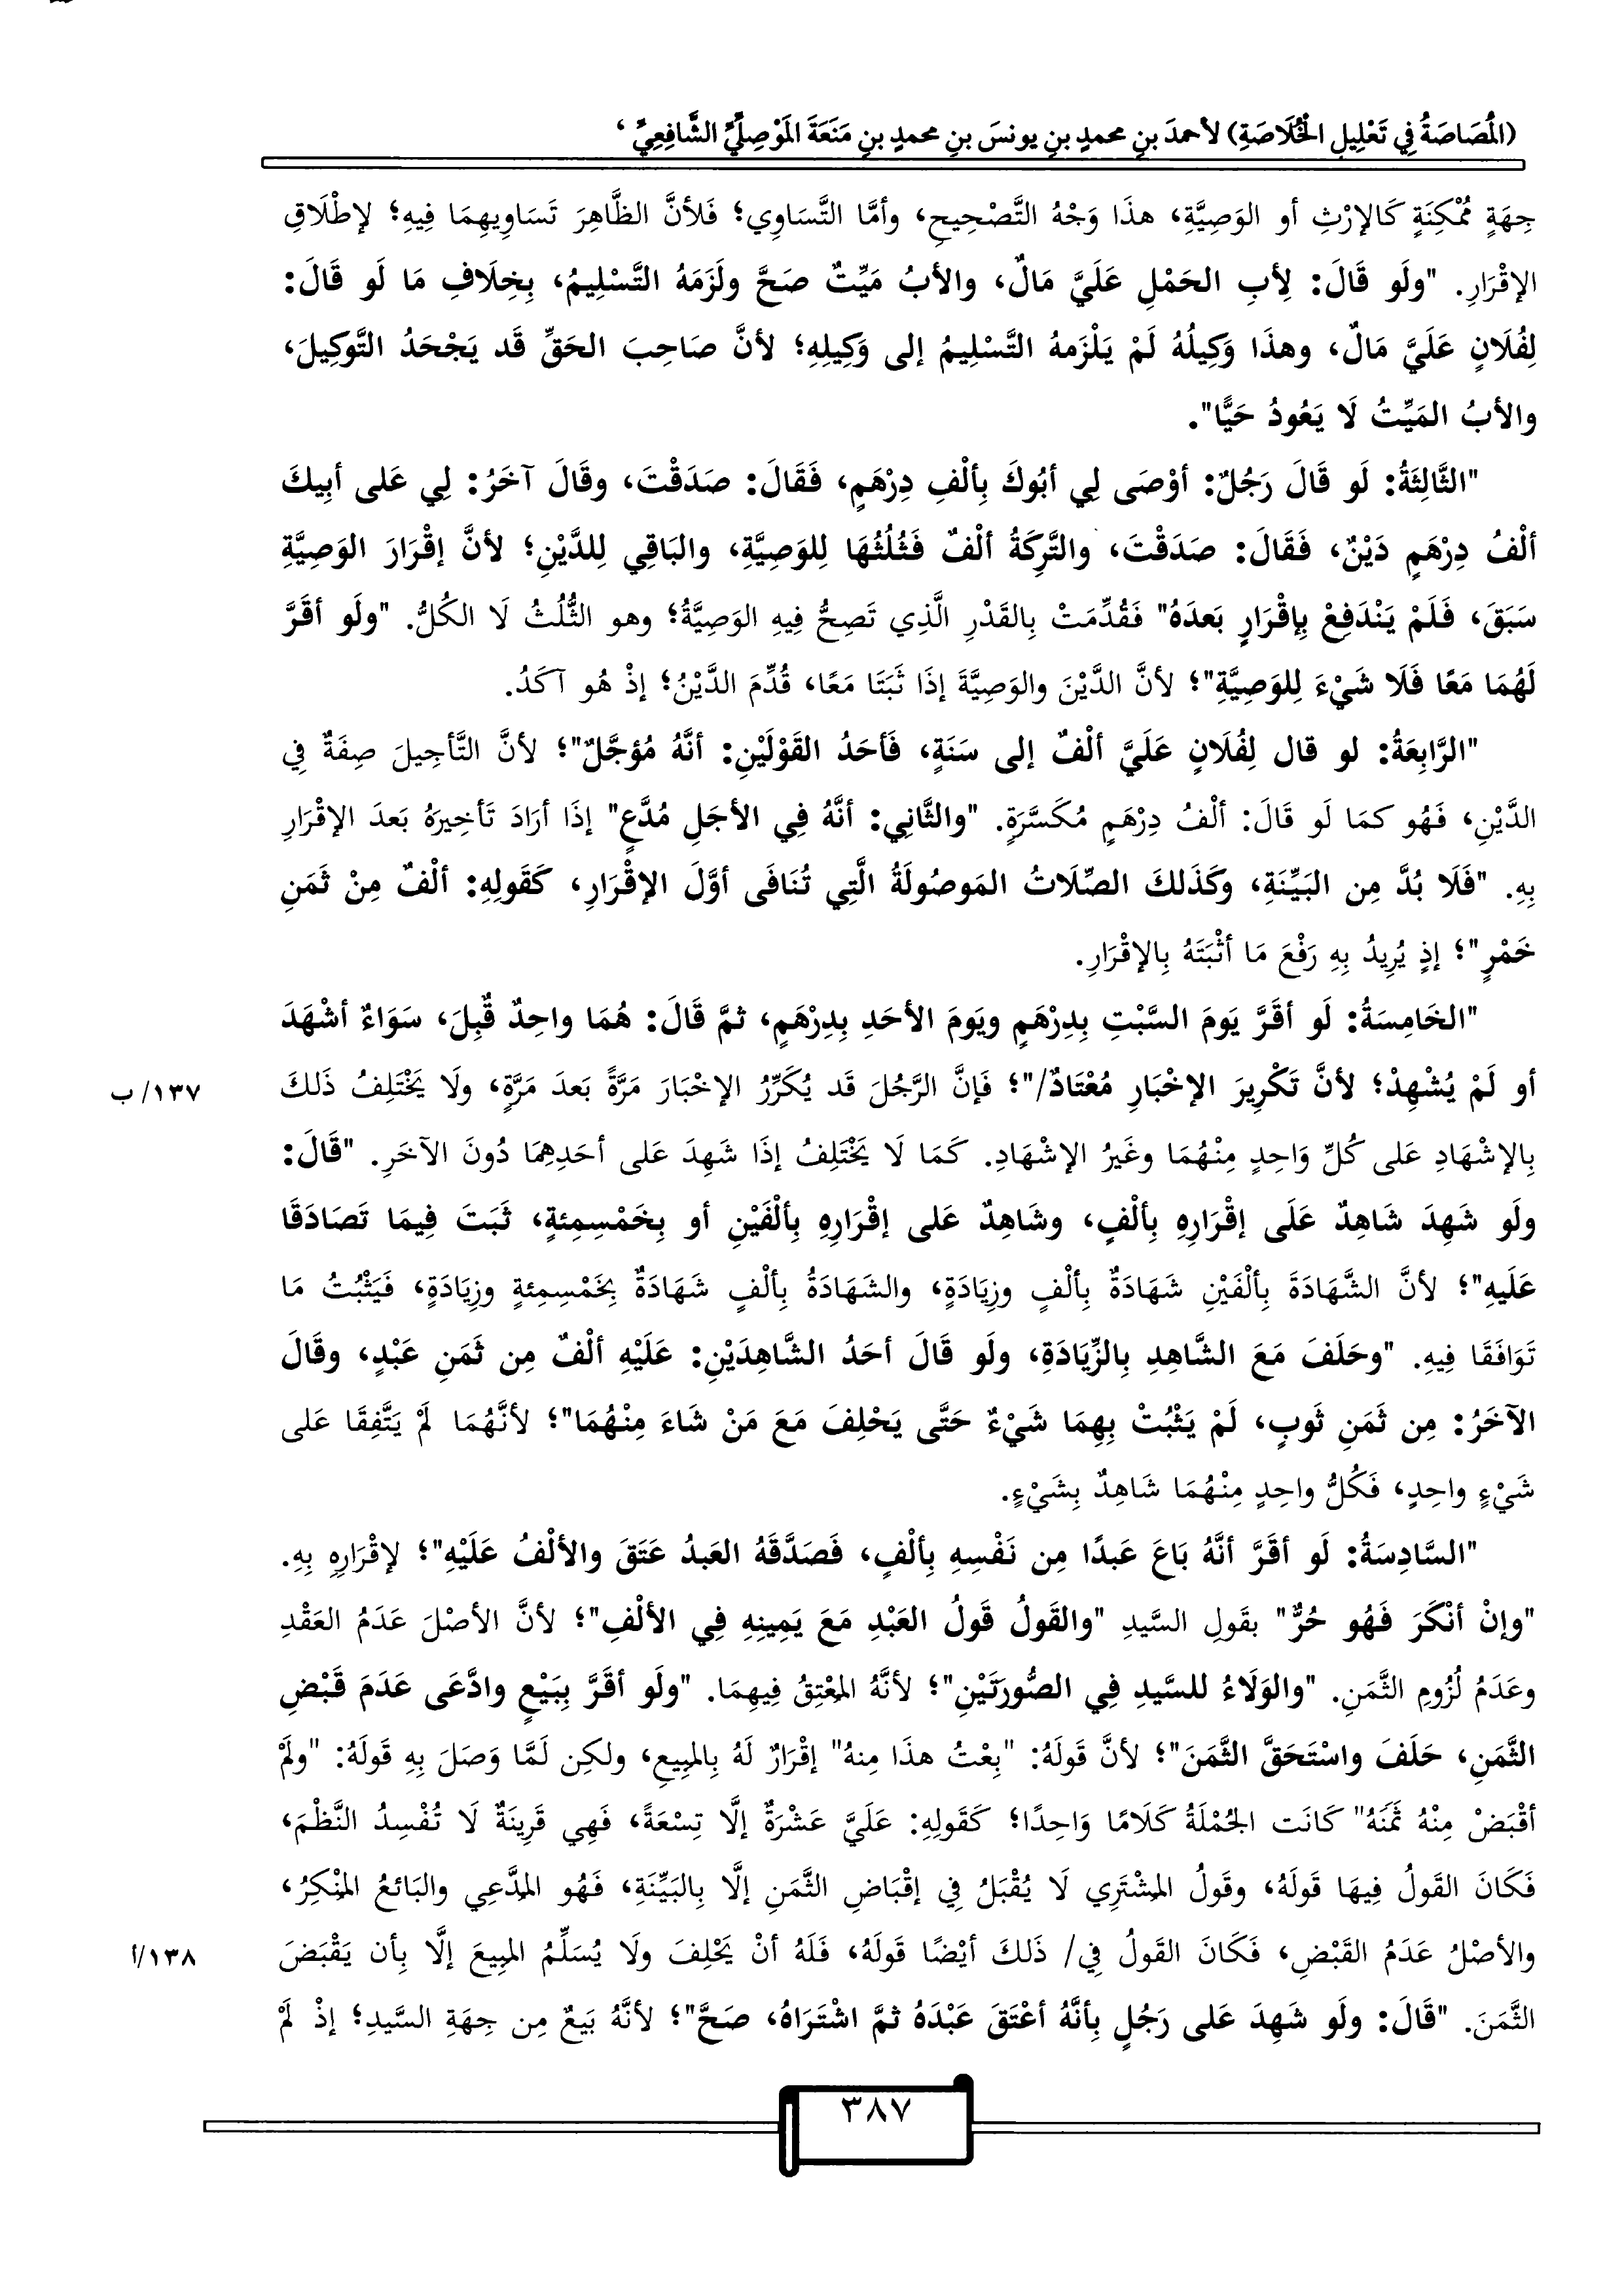 (المُصَاصَةُ فِي تَعْلِيلِ الخُلَاصَةِ) لأحمدَ بنِ محمدِ بنِ يونسَ بنِ محمدِ بنِ مَنَعَةَ المَوْصِلِيِّ الشَّافِعِيِّ ‘
جِهَةٍ مُمْكِنَةٍ كَالإرْثِ أو الوَصِيَّةِ، هذَا وَجْهُ التَّصْحِيحِ، وأمَّا التَّسَاوِي؛ فَلأنَّ الظَّاهِرَ تَسَاوِيهِمَا فِيهِ؛ لإطْلَاقِ
الإقْرَارِ. "ولَو قَالَ: لِأبِ الحَمْلِ عَلَيَّ مَالٌ، والأبُ مَيِّتٌ صَحَّ ولَزَمَهُ التَّسْلِيمُ، بِخِلَافِ مَا لَو قَالَ:
لِفُلَانٍ عَلَيَّ مَالٌ، وهذَا وَكِيلُهُ لَمْ يَلْزَمهُ التَّسْلِيمُ إلى وَكِيلِهِ؛ لأنَّ صَاحِبَ الحَقِّ قَد يَجْحَدُ التَّوكِيلَ،
والأبُ المَيِّتُ لَا يَعُودُ حَيًّا".
"الثَّالِثَةُ: لَو قَالَ رَجُلٌ: أوْصَى لِي أبُوكَ بِألْفِ دِرْهَمٍ، فَقَالَ: صَدَقْتَ، وقَالَ آخَرُ: لِي عَلى أبِيكَ
ألْفُ دِرْهَمٍ دَيْنٌ، فَقَالَ: صَدَقْتَ، والتَّرِكَةُ ألْفٌ فَثُلُثُهَا لِلوَصِيَّةِ، والبَاقِي لِلدَّيْنِ؛ لأنَّ إقْرَارَ الوَصِيَّةِ
سَبَقَ، فَلَمْ يَنْدَفِعْ بِإقْرَارٍ بَعدَهُ" فَقُدِّمَتْ بِالقَدْرِ الَّذِي تَصِحُّ فِيهِ الوَصِيَّةُ؛ وهو الثُّلُثُ لَا الكُلُّ. "ولَو أقَرَّ
لَهُمَا مَعًا فَلَا شَيْءَ لِلوَصِيَّةِ"؛ لأنَّ الدَّيْنَ والوَصِيَّةَ إذَا ثَبَتَا مَعًا، قُدِّمَ الدَّيْنُ؛ إذْ هُو آكَدُ.
"الرَّابِعَةُ: لو قال لِفُلَانٍ عَلَيَّ ألْفٌ إلى سَنَةٍ، فَأحَدُ القَوْلَيْنِ: أنَّهُ مُؤجَّلٌ"؛ لأنَّ التَّأجِيلَ صِفَةٌ فِي
الدَّيْنِ، فَهُو كمَا لَو قَالَ: ألْفُ دِرْهَمٍ مُكَسَّرَةٍ. "والثَّانِي: أنَّهُ فِي الأجَلِ مُدَّعٍ" إذَا أرَادَ تَأخِيرَهُ بَعدَ الإقْرَارِ
بِهِ. "فَلَا بُدَّ مِن البَيِّنَةِ، وكَذَلكَ الصِّلَاتُ المَوصُولَةُ الَّتِي تُنَافَى أوَّلَ الإقْرَارِ، كَقَولِهِ: ألْفٌ مِنْ ثَمَنِ
خَمْرٍ"؛ إذٍ يُرِيدُ بِهِ رَفْعَ مَا أثْبَتَهُ بِالإقْرَارِ.
"الخَامِسَةُ: لَو أقَرَّ يَومَ السَّبْتِ بِدِرْهَمٍ ويَومَ الأحَدِ بِدِرْهَمٍ، ثمَّ قَالَ: هُمَا واحِدٌ قُبِلَ، سَوَاءٌ أشْهَدَ
أو لَمْ يُشْهِدْ؛ لأنَّ تَكْرِيرَ الإخْبَارِ مُعْتَادٌ/"؛ فَإنَّ الرَّجُلَ قَد يُكَرِّرُ الإخْبَارَ مَرَّةً بَعدَ مَرَّةٍ، ولَا يَخْتَلِفُ ذَلكَ
١٣٧/ ب
بِالإشْهَادِ عَلى كُلِّ وَاحِدٍ مِنْهُمَا وغَيرُ الإشْهَادِ. كَمَا لَا يَخْتَلِفُ إذَا شَهِدَ عَلى أحَدِهِمَا دُونَ الآخَرِ. "قَالَ:
ولَو شَهِدَ شَاهِدٌ عَلَى إقْرَارِهِ بِألْفٍ، وشَاهِدٌ عَلى إقْرَارِهِ بِألْفَيْنِ أو بِخَمْسِمِئةٍ، ثَبَتَ فِيمَا تَصَادَقَا
عَلَيهِ"؛ لأنَّ الشَّهَادَةَ بِألْفَيْنِ شَهَادَةٌ بِألْفٍ وزِيَادَةٍ، والشَهَادَةُ بِألْفٍ شَهَادَةٌ بِخَمْسِمِئةٍ وزِيَادَةٍ، فَيَثْبُتُ مَا
تَوَافَقَا فِيهِ. "وحَلَفَ مَعَ الشَّاهِدِ بِالزِّيَادَةِ، ولَو قَالَ أحَدُ الشَّاهِدَيْنِ: عَلَيْهِ ألْفٌ مِن ثَمَنِ عَبْدٍ، وقَالَ
الآخَرُ: مِن ثَمَنِ ثَوبٍ، لَمْ يَثْبُتْ بِهِمَا شَيْءٌ حَتَّى يَحْلِفَ مَعَ مَنْ شَاءَ مِنْهُمَا"؛ لأنَّهُمَا لَمْ يَتَّفِقَا عَلى
شَيْءٍ واحِدٍ، فَكُلُّ واحِدٍ مِنْهُمَا شَاهِدٌ بِشَيْءٍ.
"السَّادِسَةُ: لَو أقَرَّ أنَّهُ بَاعَ عَبدًا مِن نَفْسِهِ بِألْفٍ، فَصَدَّقَهُ العَبدُ عَتَقَ والألْفُ عَلَيْهِ"؛ لإقْرَارِهِ بِهِ.
"وإنْ أنْكَرَ فَهُو حُرٌّ" بقَولِ السَّيدِ "والقَولُ قَولُ العَبْدِ مَعَ يَمِينِهِ فِي الألْفِ"؛ لأنَّ الأصْلَ عَدَمُ العَقْدِ
وعَدَمُ لُزُومِ الثَّمَنِ. "والوَلَاءُ للسَّيدِ فِي الصُّورَتَيْنِ"؛ لأنَّهُ المُعْتِقُ فِيهِمَا. "ولَو أقَرَّ بِبَيْعٍ وادَّعَى عَدَمَ قَبْضِ
الثَّمَنِ، حَلَفَ واسْتَحَقَّ الثَّمَنَ"؛ لأنَّ قَولَهُ: "بِعْتُ هذَا مِنهُ" إقْرَارٌ لَهُ بِالمَبِيعِ، ولكِن لَمَّا وَصَلَ بِهِ قَولَهُ: "ولَمْ
أقْبَضْ مِنْهُ ثَمَنَهُ" كَانَت الجُمْلَةُ كَلَامًا وَاحِدًا؛ كَقَولِهِ: عَلَيَّ عَشْرَةٌ إلَّا تِسْعَةً، فَهِي قَرِينَةٌ لَا تُفْسِدُ النَّظْمَ،
فَكَانَ القَولُ فِيهَا قَولَهُ، وقَولُ المُشْتَرِي لَا يُقْبَلُ فِي إقْبَاضِ الثَّمَنِ إلَّا بِالبَيِّنَةِ، فَهُو المُدَّعِي والبَائعُ المُنْكِرُ،
والأصْلُ عَدَمُ القَبْضِ، فَكَانَ القَولُ فِي/ ذَلكَ أيْضًا قَولَهُ، فَلَهُ أنْ يَحْلِفَ ولَا يُسَلِّمُ المَبِيعَ إلَّا بِأن يَقْبَضَ
١٣٨/أ
الثَّمَنَ. "قَالَ: ولَو شَهِدَ عَلى رَجُلٍ بِأنَّهُ أعْتَقَ عَبْدَهُ ثمَّ اشْتَرَاهُ، صَحَّ"؛ لأنَّهُ بَيعٌ مِن جِهَةِ السَّيدِ؛ إذْ لَمْ
٣٨٧